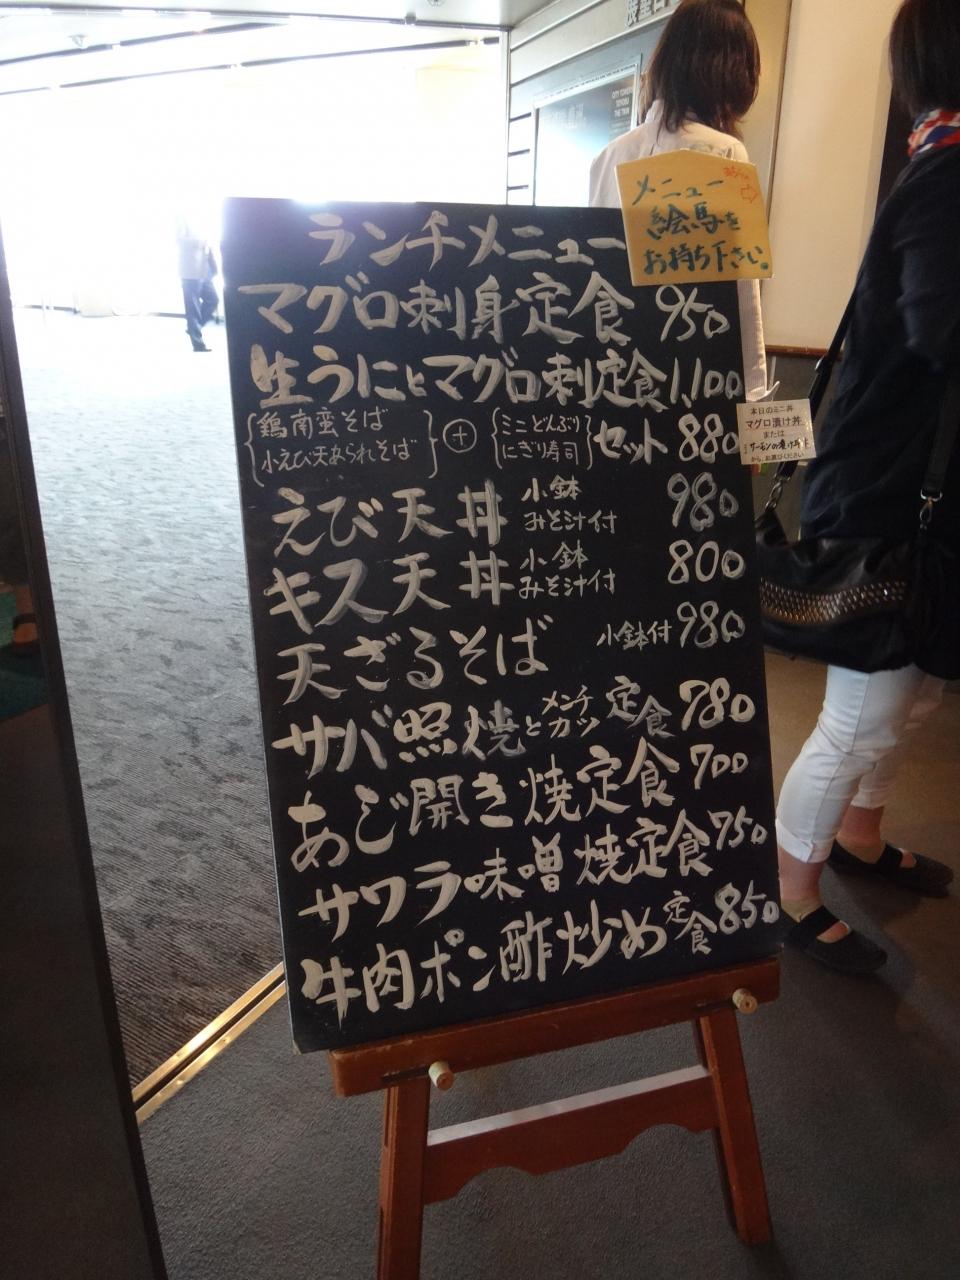 メニュー
絵馬を
お持ち下さい。
ランチメニュー
マグロ刺身定食 950
生うにとマグロ刺定食 1,100
{鶏南蛮そば 小えび天あられそば} + {ミニどんぶり にぎり寿司} セット 880
本日のミニ丼
マグロ漬け丼
または
サーモンの漬け丼
から、お選びください
えび天丼 小鉢 みそ汁付 980
キス天丼 小鉢 みそ汁付 800
天ざるそば 小鉢付 980
サバ照焼とメンチカツ定食 780
あじ開き焼定食 700
サワラ味噌焼定食 750
牛肉ポン酢炒め定食 850